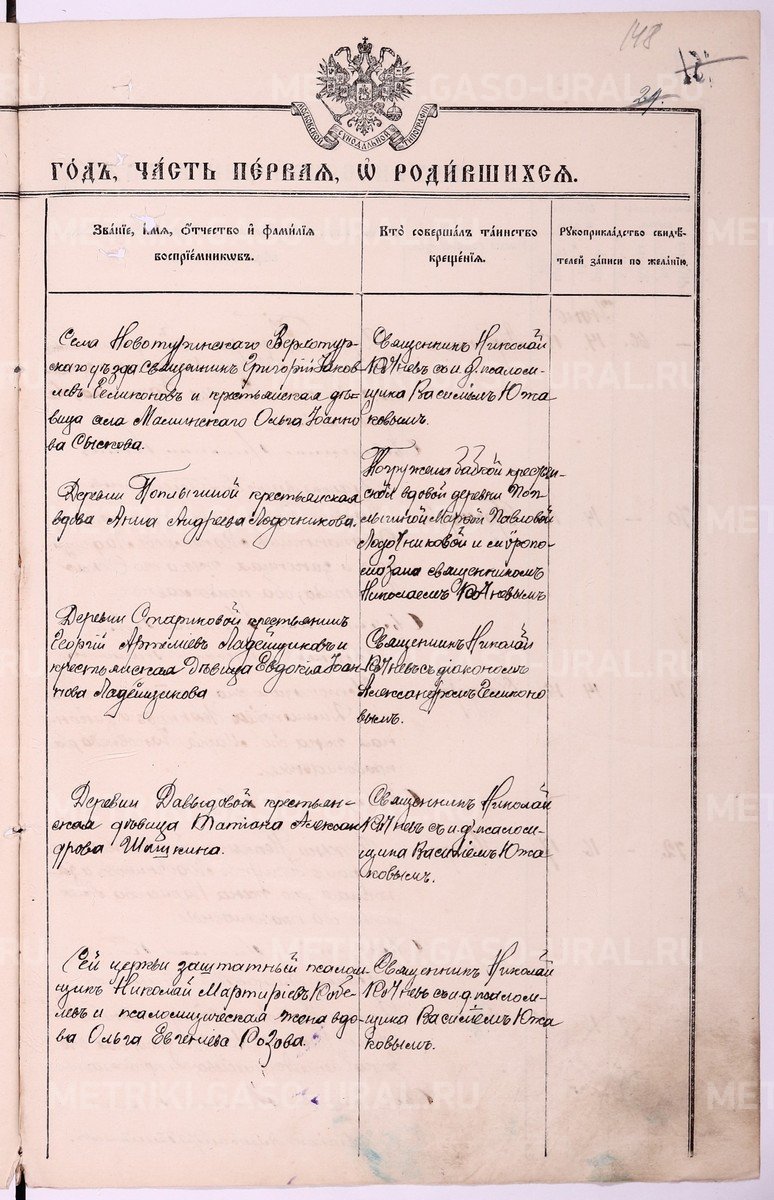 148
29.
МОСКОВСКОЙ СѴНОДАЛЬНОЙ ТИПОГРАФІИ
ГО́ДЪ, ЧА́СТЬ ПЕ́РВАЯ, Ѡ҆ РОДИ́ВШИХСЯ.
ЗВА́НІЕ, И҆́МЯ, Ѻ҆́ТЧЕСТВО И҆ ФАМИ́ЛІЯ
ВОСПРІЕ́МНИКѠВЪ.
КТО̀ СОВЕРША́ЛЪ ТА́ИНСТВО
КРЕЩЕ́НІЯ.
РУКОПРИКЛА́ДСТВО СВИДѢ́-
ТЕЛЕЙ ЗА́ПИСИ ПО ЖЕЛА́НІЮ.
Села Новотуринскаго Верхотур-
скаго уѣзда Священникъ Григорій Іаков
левъ Геликоновъ и крестьянская дѣ-
вица села Ольга Іоанно
ва Сыскова.
Священникъ Николай
съ и д псалом-
щика Василіемъ Южа
ковымъ.
Деревни крестьянская
вдова Анна Андреева Лодочникова.
Погружена бабкой крестьян-
ской вдовой деревни
Марѳой Павловой
Лодочниковой и мѵропо-
мазана священникомъ
Николаемъ
Деревни Стариковой крестьянинъ
Георгій Артеміевъ Ладейщиковъ и
крестьянская дѣвица Евдокія Іоан-
нова Ладейщикова
Священникъ Николай
съ діакономъ
Александромъ Геликоно
вымъ.
Деревни Давыдовой крестьян-
ская дѣвица Татіана Алексан
дрова Шишкина.
Священникъ Николай
съ и д псалом-
щика Василіемъ Южа
ковымъ.
Сей церкви заштатный псалом
щикъ Николай Мартиріевъ Кобе
левъ и псаломщическая жена вдо
ва Ольга Евгеніева Розова.
Священникъ Николай
съ и д псалом-
щика Василіемъ Южа
ковымъ.
METRIKI.GASO-URAL.RU